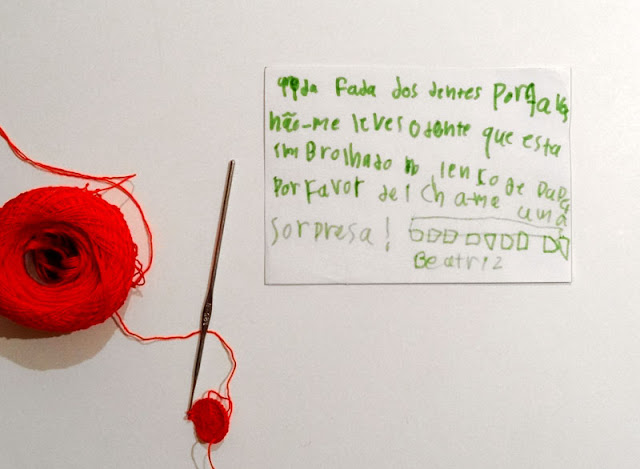 qrida Fada dos dentes Porfavor
não-me leves o dente que esta
imBrolhado no lenço de papa
Porfavor deicha-me uma
sorpresa!
Beatriz